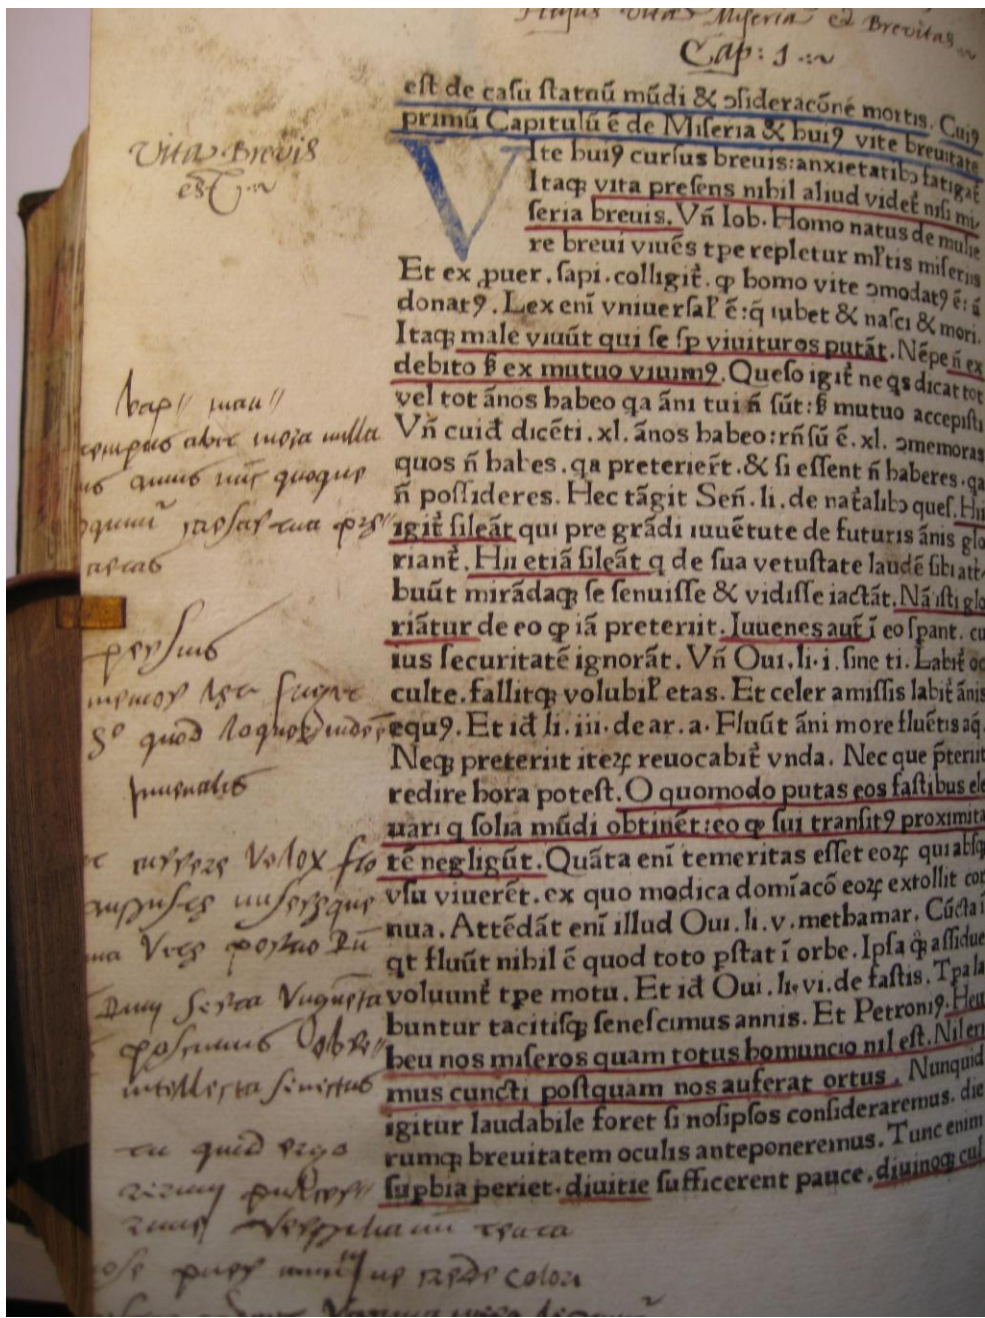 Hujus Vitæ Miseria et Brevitas
Cap: 1
est de casu statuū mūdi & ↄsideracōne mortis. Cuiꝰ
primū Capitulū ē de Miseria & huiꝰ vite breuitate
Vita Brevis
est
Vite huiꝰ cursus breuis: anxietatibꝫ fatigat̄
Itaqꝫ vita presens nihil aliud videt̄ nisi mi
seria breuis. Vñ Iob. Homo natus de mulie
re breui viuēs tꝑe repletur ml̄tis miseriis
Et ex puer. sapi. colligit̄. ꝙ homo vite ↄmodatꝰ ē: ñ
donatꝰ. Lex enī vniuersal̄ ē: q̄ iubet & nasci & mori.
Itaqꝫ male viuūt qui se sꝑ viuituros putāt. Nēpe ñ ex
debito sꝫ ex mutuo viuimꝰ. Queso igit̄ ne qs dicat tot
vel tot ānos habeo qa āni tui ñ sūt: sꝫ mutuo accepisti
Vñ cuid̄ dicēti. xl. ānos habeo: rñsū ē. xl. ↄmemoras
quos ñ habes. qa preteriert̄. & si essent ñ haberes. qa
ñ possideres. Hec tāgit Señ. li. de nat̄alibꝫ ques. Hii
igit̄ sileāt qui pre grādi iuuētute de futuris ānis glo
riant̄. Hii etiā sileāt q de sua vetustate laudē sibi att
buūt mirādaqꝫ se senuisse & vidisse iactāt. Nā isti glo
riātur de eo ꝙ iā preteriit. Iuuenes aut̄ ī eo spant. cu
ius securitatē ignorāt. Vñ Oui. li. i. sine ti. Labit̄ oc
culte. fallitqꝫ volubil̄ etas. Et celer amissis labit̄ ānis
equꝰ. Et id̄ li. iii. de ar. a. Fluūt āni more fluētis aq̄.
Neqꝫ preteriit iteꝝ reuocabit̄ vnda. Nec que p̄teriit
redire hora potest. O quomodo putas eos fastibus ele
uari q solia mūdi obtinēt: eo ꝙ sui transitꝰ proximita
tē negligūt. Quāta enī temeritas esset eoꝝ qui absqꝫ
vsu viuerēt. ex quo modica domīacō eoꝝ extollit cor
nua. Attēdāt enī illud Oui. li. v. methamar. Cūcta ī
qt fluūt nihil ē quod toto pstat ī orbe. Ipsa qꝫ assidue
voluunt̄ tꝑe motu. Et id̄ Oui. li. vi. de fastis. Tꝑa la
buntur tacitisqꝫ senescimus annis. Et Petroniꝰ. Heu
heu nos miseros quam totus homuncio nil est. Nil eri
mus cuncti postquam nos auferat ortus. Nunquid
igitur laudabile foret si nosipsos consideraremus. die
rumqꝫ breuitatem oculis anteponeremus. Tunc enim
supbia periet. diuitie sufficerent pauce. diuinoqꝫ cul
tempus abit mora nulla
annus quoque
persius
memor fugit
quod loquor inde
juuenalis
velox
intellecta senectus
tu quid ergo
colori